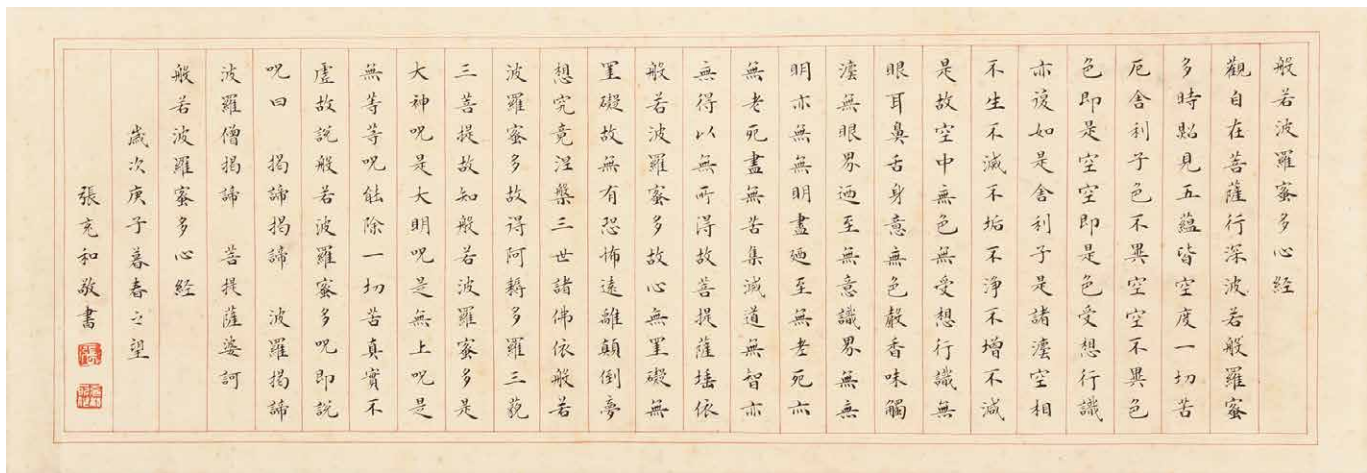 般若波羅蜜多心経
觀自在菩薩行深波若般羅蜜
多時照見五蘊皆空度一切苦
厄舍利子色不異空空不異色
色即是空空即是色受想行識
亦復如是舍利子是諸灋空相
不生不滅不垢不淨不增不減
是故空中無色無受想行識無
眼耳鼻舌身意無色聲香味觸
灋無眼界迺至無意識界無無
明亦無無明盡迺至無老死亦
無老死盡無苦集滅道無智亦
無得以無所得故菩提薩埵依
般若波羅蜜多故心無罣礙無
罣礙故無有恐怖遠離顛倒夢
想究竟涅槃三世諸佛依般若
波羅蜜多故得阿耨多羅三藐
三菩提故知般若波羅蜜多是
大神呪是大明呪是無上呪是
無等等呪能除一切苦真實不
虛故說般若波羅蜜多呪即說
呪曰 揭諦揭諦 波羅揭諦
波羅僧揭諦 菩提薩婆訶
般若波羅蜜多心経
歲次庚子暮春之望
張充和敬書
張